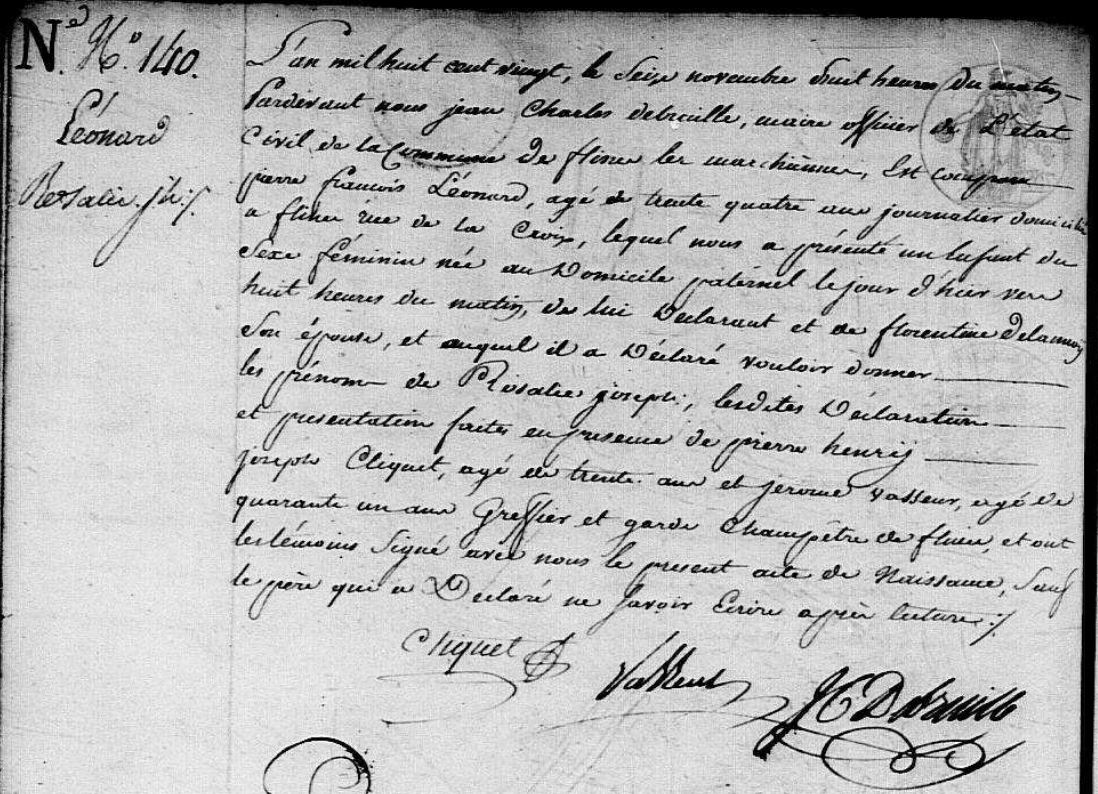 N.e N.o 140.
Léonard
Rosalie jh:/.
L'an mil huit cent vingt, le Seize novembre à huit heures du matin
Pardevant nous jean Charles debruille, maire officier de L'état
Civil de la Commune de flines les marchiennes, Est comparu
pierre françois Léonard, agé de trente quatre ans journalier domicilié
a flines rue de la Croix, lequel nous a présenté un Enfant du
Sexe féminin née au Domicile paternel le jour d'hier vers
huit heures du matin, de lui Déclarant et de florentine Delannoy
Son épouse, et auquel il a Déclaré vouloir donner
les prénoms de Rosalie joseph, lesdites Déclaration
et présentation faites en présence de pierre henrij
joseph Cliquet, agé de trente ans et jerome Vasseur, agé de
quarante un ans Greffier et garde Champêtre de flines, et ont
les témoins Signé avec nous le present acte de Naissance, Sauf
le père qui a Declaré ne Savoir Ecrire après lecture :/
Cliquet
Vasseur
JC Debruille